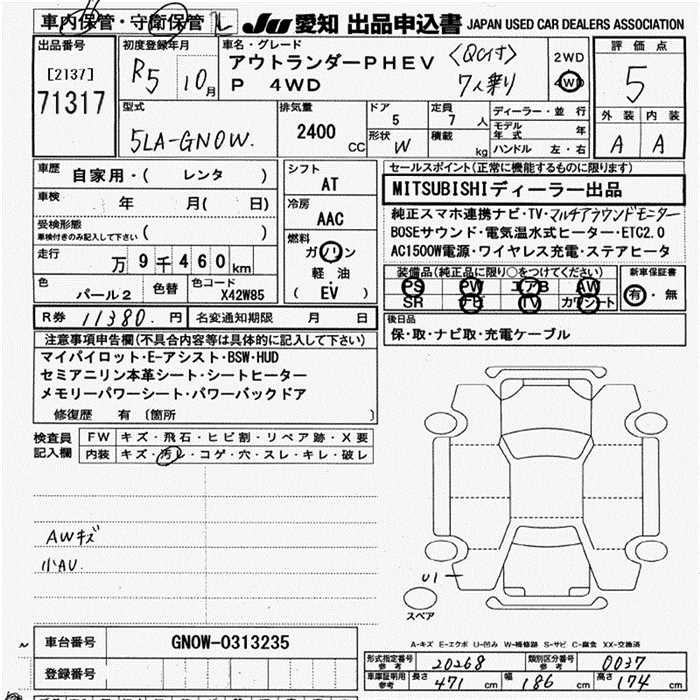 車内保管・守衛保管 JU 愛知 出品申込書 JAPAN USED CAR DEALERS ASSOCIATION
出品番号 初度登録年月 車名・グレード 評価点
[2137] R5 10月 アウトランダーPHEV 〈QC付〉 2WD 5
71317 P 4WD 7人乗り 4WD
型式 排気量 ドア 定員 ディーラー・並行 外装 内装
5LA-GN0W. 2400 CC 5 7人 モデル年式 年 A A
形状 W 積載 kg ハンドル 左・右
車歴 自家用・( レンタ ) シフト AT セールスポイント(正常に機能するものに限ります)
車検 年 月( 日) 冷房 AAC MITSUBISHIディーラー出品
受検形態 ( )
車検付きのみ記入して下さい
純正スマホ連携ナビ・TV・マルチアラウンドモニター
BOSEサウンド・電気温水式ヒーター・ETC2.0
AC1500W電源・ワイヤレス充電・ステアヒータ
走行 万9千460km 燃料 ガソリン
軽油
( EV )
装備品(純正品に限り○をつけてください) 新車保証書
PS PW エアB AW 有・無
SR ナビ TV カワシート
色 パール2 色替 色コード X42W85
R券 11380.円 名変通知期限 月 日 後日品
保・取・ナビ取・充電ケーブル
注意事項申告欄(不具合内容等は具体的に記入して下さい)
マイパイロット・E-アシスト・BSW・HUD
セミアニリン本革シート・シートヒーター
メモリーパワーシート・パワーバックドア
修復歴 有 〔箇所 〕
検査員記入欄 FW キズ・飛石・ヒビ割・リペア跡・X要
内装 キズ・汚レ・コゲ・穴・スレ・キレ・破レ
AWキズ
小AU.
U1
スペア
A-キズ E-エクボ U-凹み W-補修跡 S-サビ C-腐食 XX-交換済
車台番号 GN0W-0313235
登録番号
形式指定番号 参考 20268 類別区分番号 参考 0037
車庫証明用 参考 長さ 471 cm 幅 186 cm 高さ 174 cm